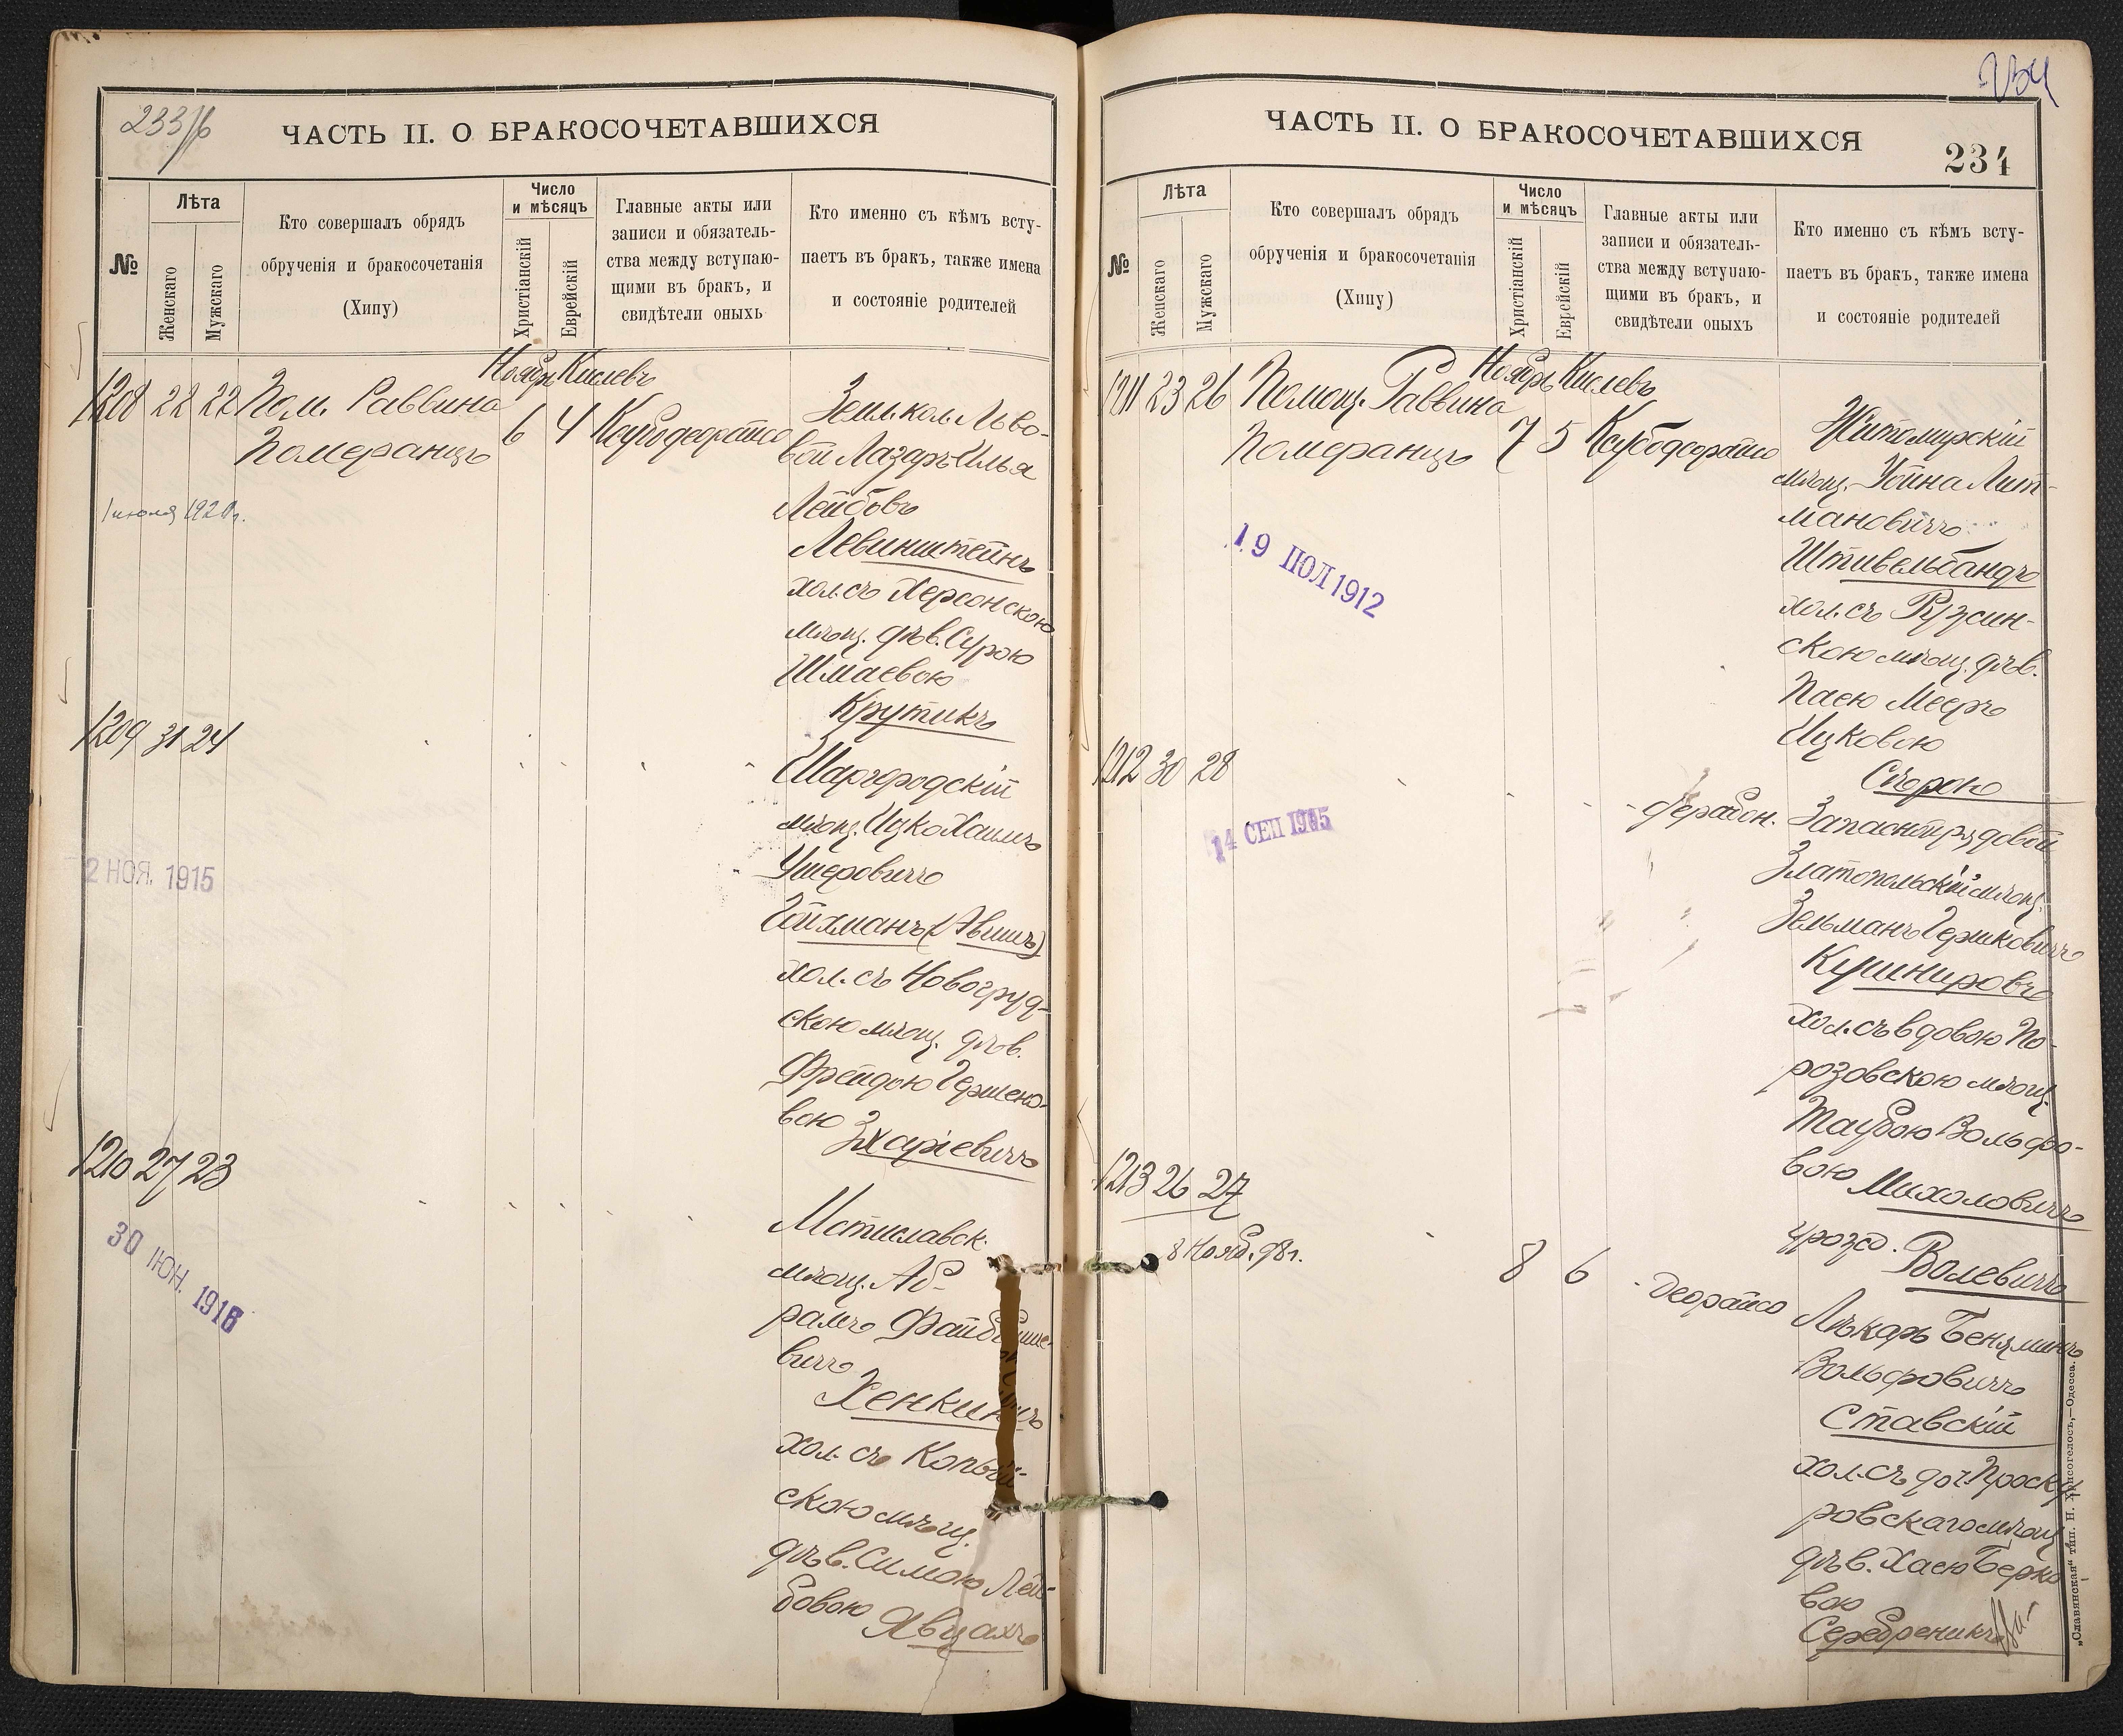 233/б
ЧАСТЬ II. О БРАКОСОЧЕТАВШИХСЯ
№
Лѣта
Женскаго
Мужскаго
Кто совершалъ обрядъ
обрученія и бракосочетанія
(Хипу)
Число
и мѣсяцъ
Христіанскій
Еврейскій
Главные акты или
записи и обязатель-
ства между вступаю-
щими въ бракъ, и
свидѣтели оныхъ
Кто именно съ кѣмъ всту-
паетъ въ бракъ, также имена
и состояніе родителей
Ноябрь Кислевъ
1208 22 22 Пом. Раввина
Померанцъ 6 4
Земл. кол. Льво-
вой Лазарь Илья
Лейбовъ
Левинштейнъ
хол. съ Херсонскою
мѣщ. дѣв. Сурою
Шмаевою
Крутикъ
1209 31 24
2 НОЯ. 1915
Шаргородскій
мѣщ. Ицко Хаимъ
Ушеровичъ
Гойхманъ (Авишъ)
хол. съ Новогруд-
скою мѣщ. дѣв.
Фрейдою Гершено-
вою
1210 27 23
Мстиславск.
мѣщ. Аб-
рамъ
вичъ
Хенкинъ
хол. съ
скою мѣщ.
дѣв. Симою Лей-
бовою Явцахъ
234
ЧАСТЬ II. О БРАКОСОЧЕТАВШИХСЯ
234
№
Лѣта
Женскаго
Мужскаго
Кто совершалъ обрядъ
обрученія и бракосочетанія
(Хипу)
Число
и мѣсяцъ
Христіанскій
Еврейскій
Главные акты или
записи и обязатель-
ства между вступаю-
щими въ бракъ, и
свидѣтели оныхъ
Кто именно съ кѣмъ всту-
паетъ въ бракъ, также имена
и состояніе родителей
Ноябрь Кислевъ
1211 23 26 Помощ. Раввина
Померанцъ 7 5
19 ІЮЛ 1912
Житомирскій
мѣщ. Уйна Лит-
мановичъ
Штивельбандъ
хол. съ Ружин-
скою мѣщ. дѣв.
Пасею Мееръ
Ицковою
1212 30 28
14 СЕН 1915
Запасный рядовой
Златопольскій мѣщ.
Зельманъ Гершковичъ
Кушнировъ
хол. съ вдовою По-
розовскою мѣщ.
Таубою Вольфо-
вою Михоловичъ
урожд. Волевичъ
1213 26 27
8 Нояб. 98 г.
8 6
Лѣкарь Бенямин
Вольфовичъ
Ставскій
хол. съ доч. Проску-
ровскаго мѣщ.
дѣв. Хасею Берко
вою
Серебреникъ
„Славянская" тип. Н. Хрисогелосъ,—Одесса.